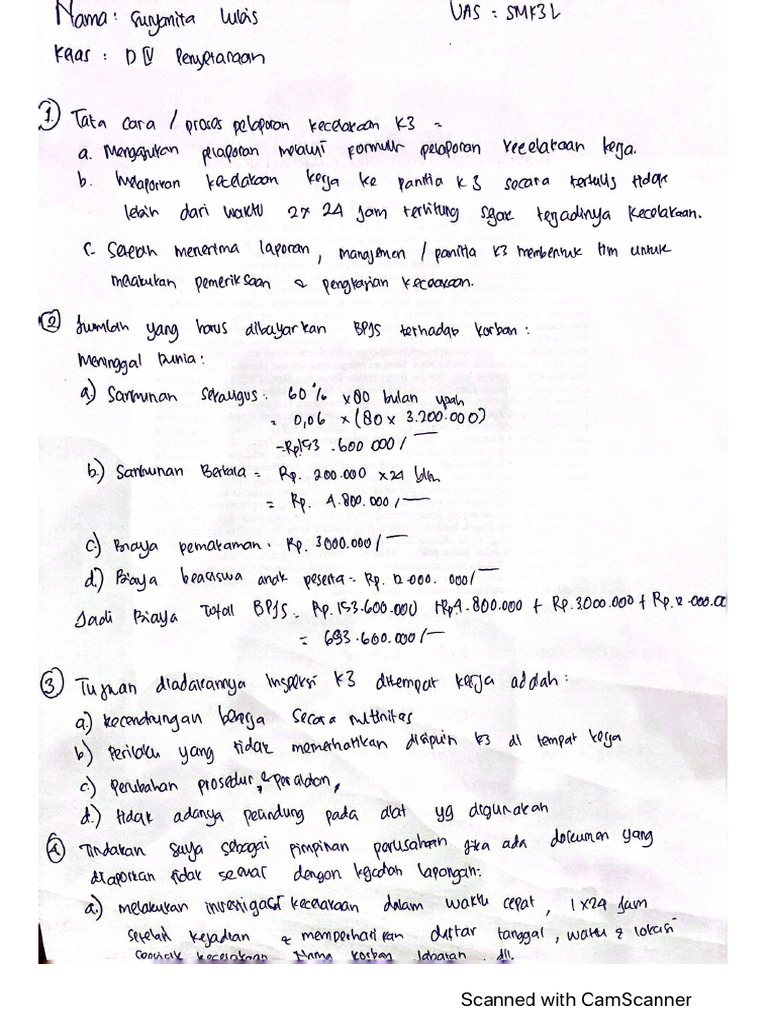 Nama : Suryanita Lubis
UAS : SMK3L
Kelas : D IV Penyetaraan
1. Tata cara / proses pelaporan kecelakaan K3 =
a. Mengajukan pelaporan melalui formulir pelaporan kecelakaan kerja.
b. Melaporkan kecelakaan kerja ke panitia K3 secara tertulis tidak
lebih dari waktu 2x 24 jam terhitung sejak terjadinya kecelakaan.
c. Setelah menerima laporan, manajemen / panitia K3 membentuk tim untuk
melakukan pemeriksaan & pengkajian kecelakaan.
2. Jumlah yang harus dibayarkan BPJS terhadap korban :
Meninggal Dunia :
a.) Santunan Sekaligus : 60% x80 bulan upah
= 0,06 x (80 x 3.200.000)
= Rp153.600 000/—
b.) Santunan Berkala = Rp. 200.000 x24 bln
= Rp. 4.800.000/—
c.) Biaya pemakaman . Rp. 3000.000/—
d.) Biaya beasiswa anak peserta = Rp. 12.000. 000/—
Jadi Biaya Total BPJS = Rp.153.600.000 +Rp4.800.000 + Rp.3.000.000 + Rp.12.000.00
= 693.600.000/—
3. Tujuan diadakannya Inspeksi K3 ditempat kerja adalah :
a.) kecendrungan bekerja secara rutinitas
b.) Perilaku yang tidak memerhatikan disiplin K3 di tempat kerja
c.) Perubahan prosedur, & peralatan,
d.) tidak adanya pelindung pada alat yg digunakan
4. Tindakan saya sebagai pimpinan perusahaan jika ada dokumen yang
dilaporkan tidak sesuai dengan kejadian lapangan:
a.) melakukan investigasi kecelakaan dalam waktu cepat, 1x24 Jam
setelah kejadian & memperhatikan daftar tanggal, waktu & lokasi
kecelakaan Nama korban Jabatan . dll.
Scanned with CamScanner